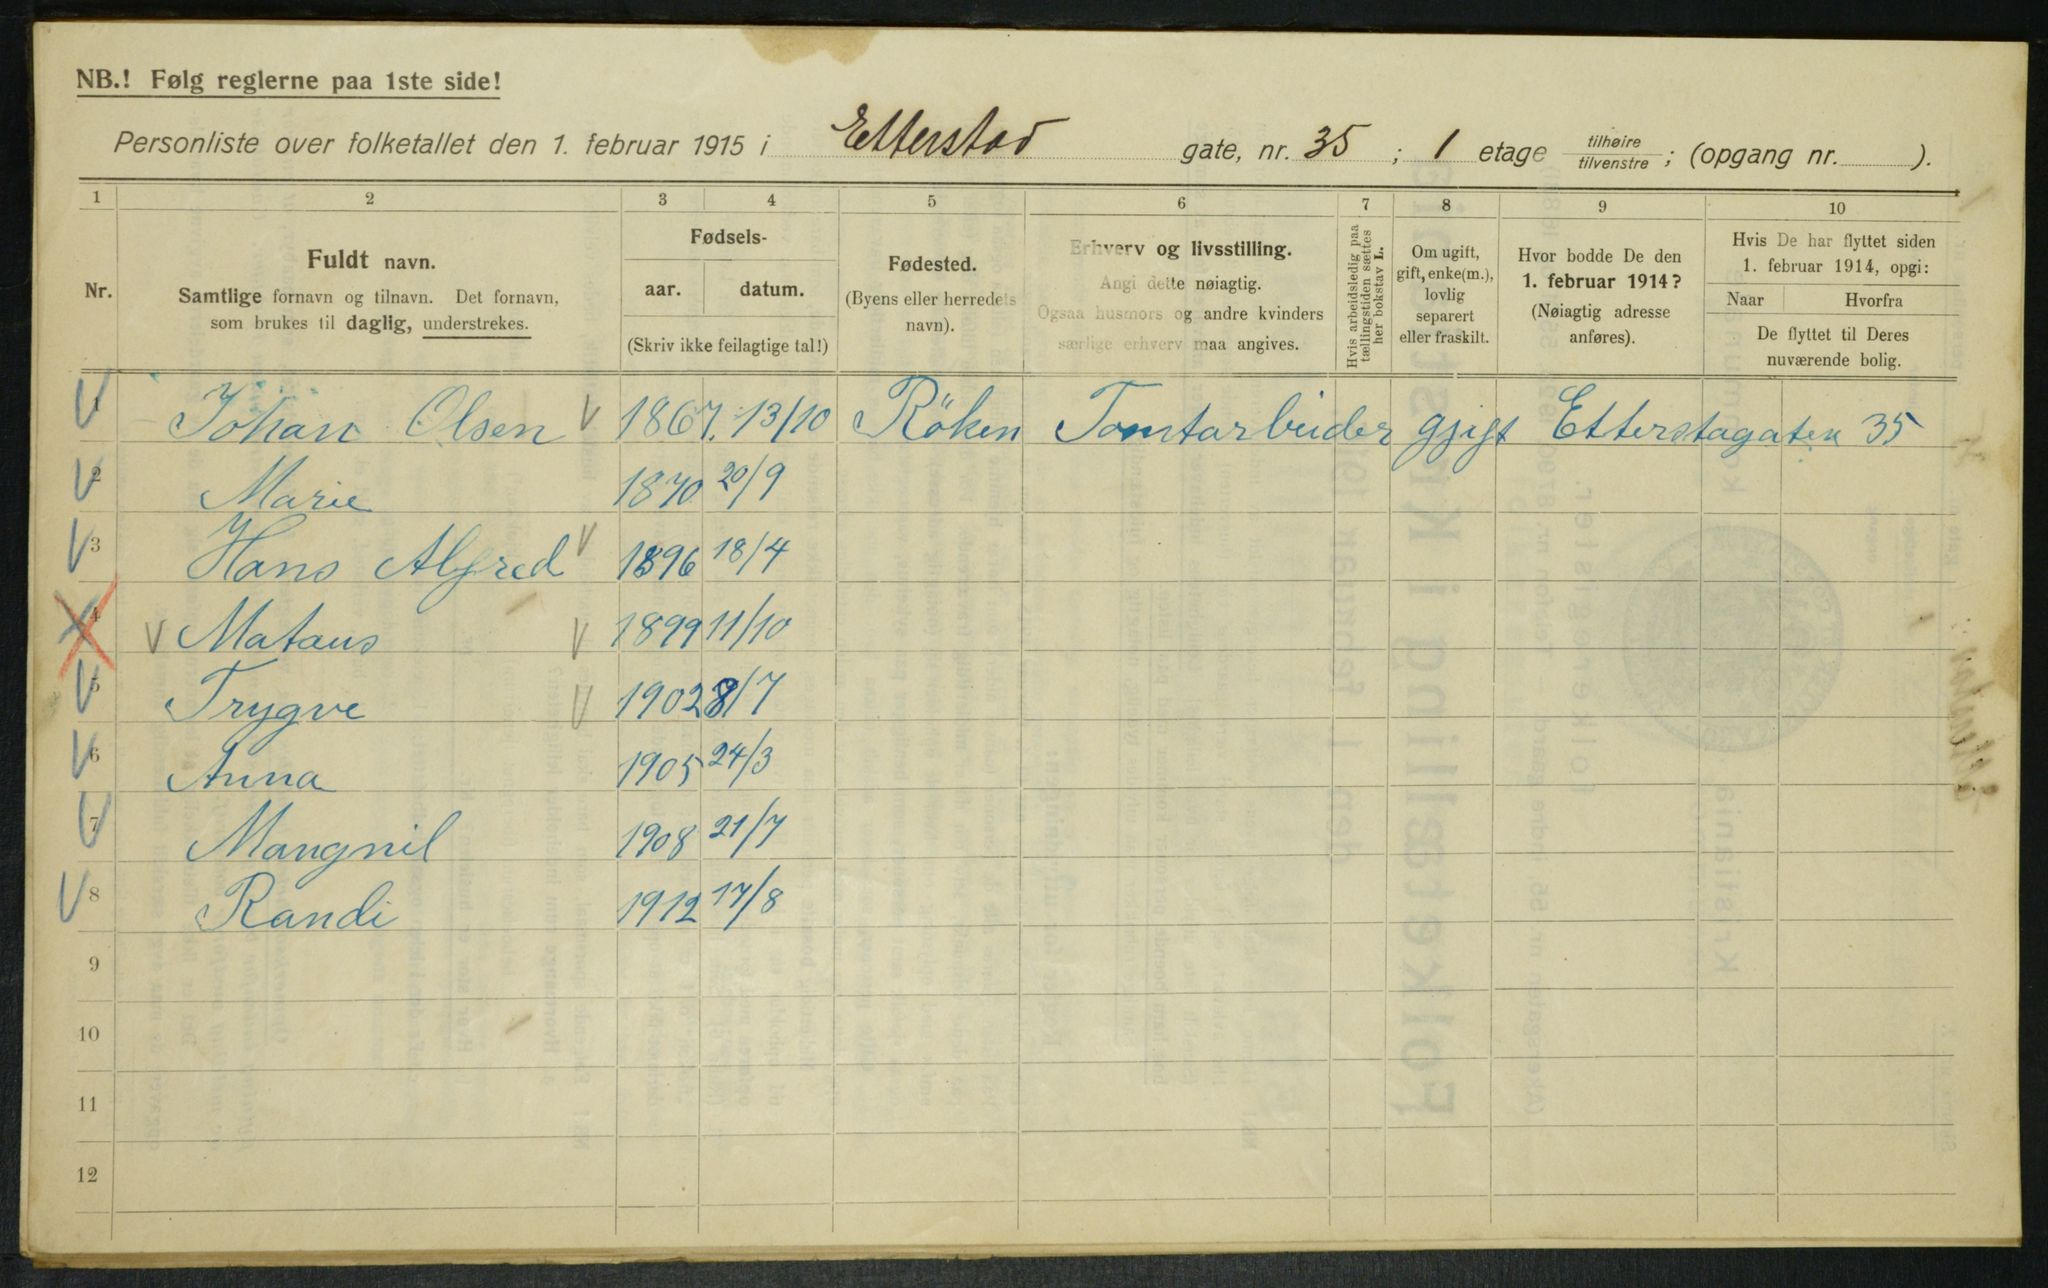 NB.! Følg reglerne paa 1ste side!
Personliste over folketallet den 1. februar 1915 i Etterstad gate, nr. 35 ; 1 etage tilhøire tilvenstre ; (opgang nr. ).
1 2 3 4 5 6 7 8 9 10
Nr.
Fuldt navn.
Samtlige fornavn og tilnavn. Det fornavn,
som brukes til daglig, understrekes.
Fødsels-
aar. datum.
(Skriv ikke feilagtige tal!)
Fødested.
(Byens eller herredets
navn).
Erhverv og livsstilling.
Angi dette nøiagtig.
Ogsaa husmors og andre kvinders
særlige erhverv maa angives.
Hvis arbeidsledig paa
tællingstiden sættes
her bokstav L.
Om ugift,
gift, enke(m.),
lovlig
separert
eller fraskilt.
Hvor bodde De den
1. februar 1914?
(Nøiagtig adresse
anføres).
Hvis De har flyttet siden
1. februar 1914, opgi:
Naar Hvorfra
De flyttet til Deres
nuværende bolig.
1 Johan Olsen 1867. 13/10 Röken Tomtarbeider gjift Etterstagaten 35
2 Marie 1870 20/9
3 Hans Alfred 1896 18/4
4 Mataus 1899 11/10
5 Trygve 1902 8/7
6 Anna 1905 24/3
7 Mangnil 1908 21/7
8 Randi 1912 17/8
9
10
11
12